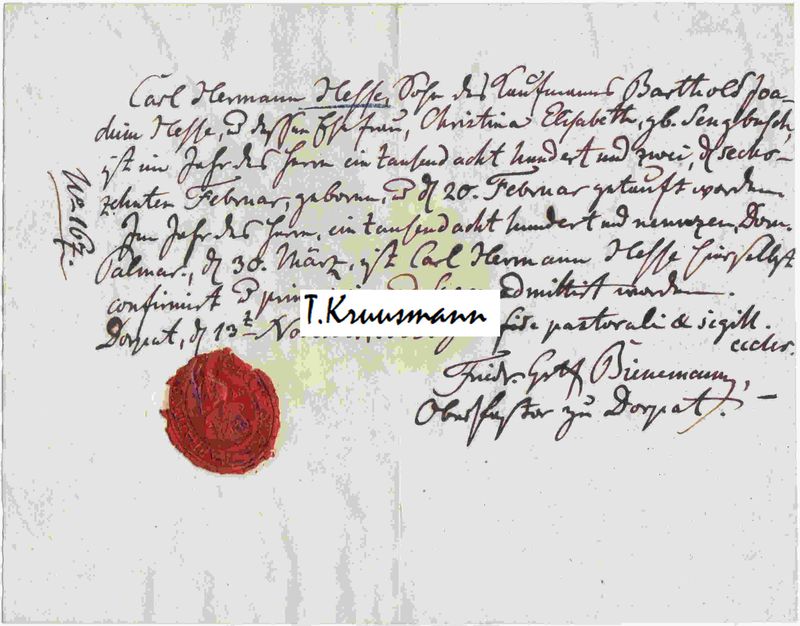 Carl Hermann Hesse, Sohn des Kaufmanns Barthold Joa-
chim Hesse, u dessen Ehefrau, Christina Elisabeth, gb. Sengbusch,
ist im Jahr des Herrn ein tausend acht hundert und zwei, d sechs-
zehnten Februar, geboren, u d 20. Februar getauft worden
Im Jahr des Herrn, ein tausend acht hundert und neunzehn, Dom.
Palmar., d 30. März, ist Carl Hermann Hesse hierselbst
confirmirt u admittirt worden
Dorpat, d 13t fide pastorali & sigill.
eccles.
Friedr. Gotth Bienemann,
Oberpastor zu Dorpat.
No. 167.
T.Kruusmann